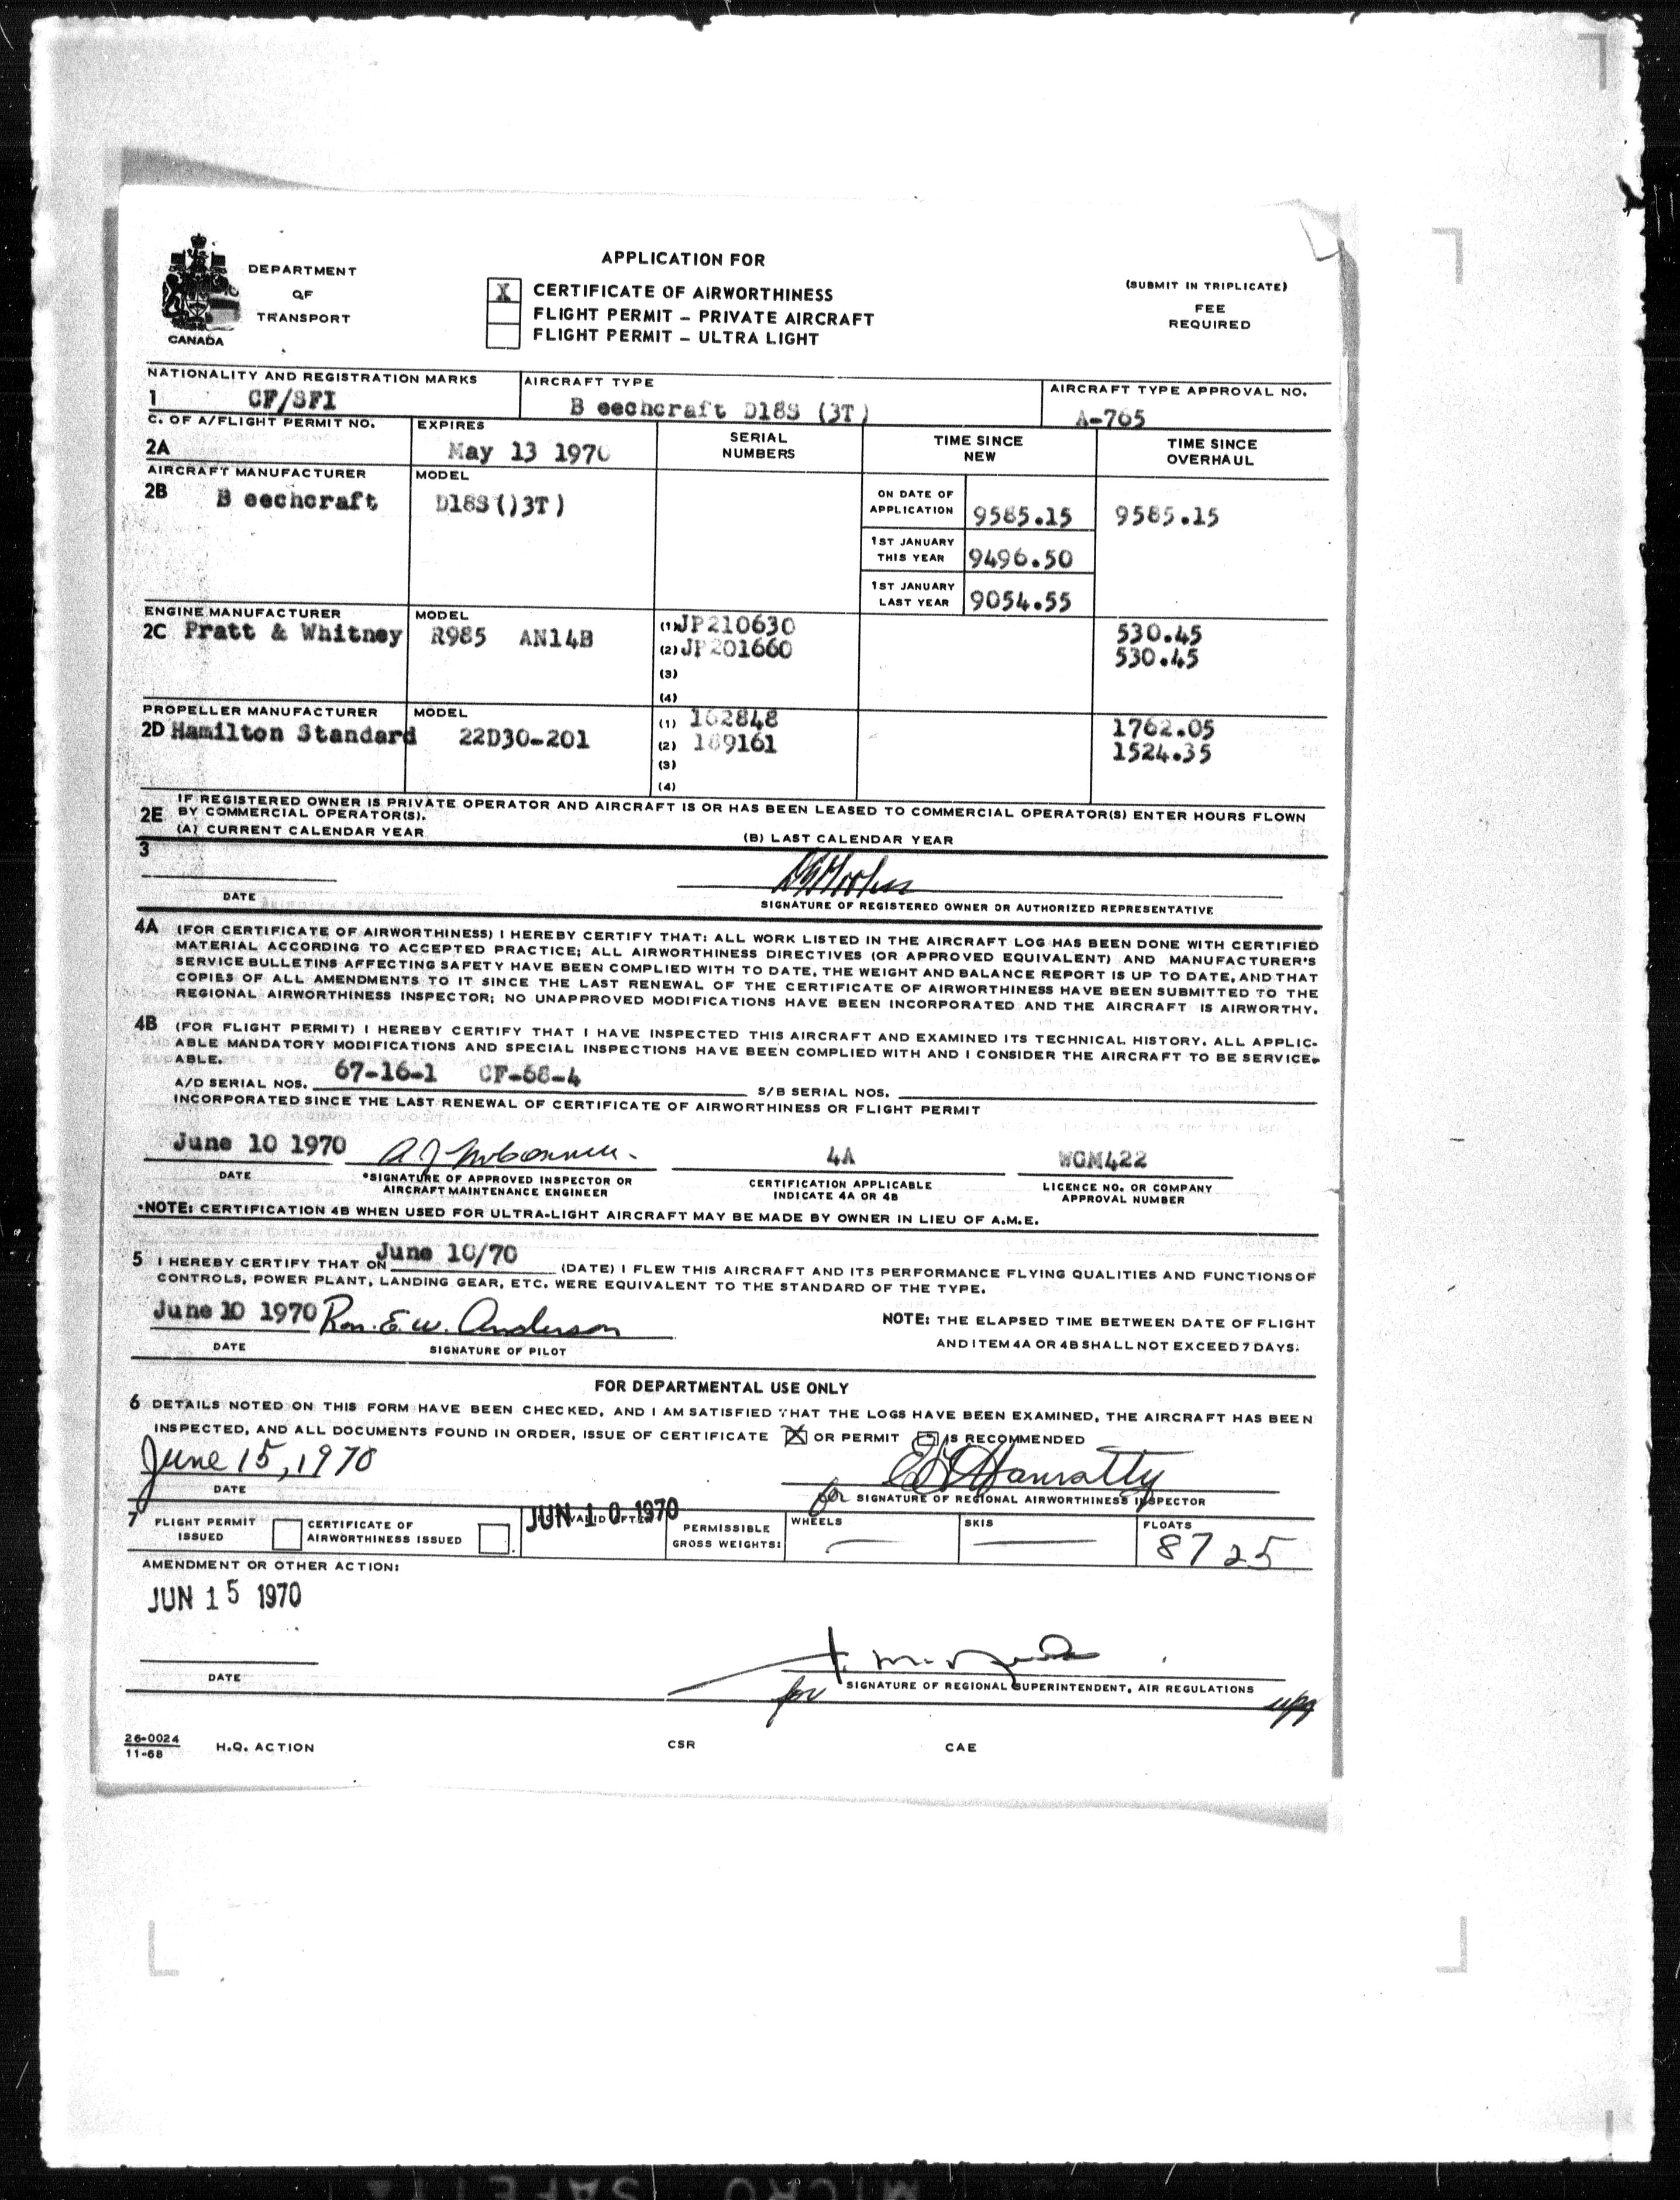 DEPARTMENT
OF
TRANSPORT
CANADA
APPLICATION FOR
X CERTIFICATE OF AIRWORTHINESS
FLIGHT PERMIT – PRIVATE AIRCRAFT
FLIGHT PERMIT – ULTRA LIGHT
(SUBMIT IN TRIPLICATE)
FEE
REQUIRED
NATIONALITY AND REGISTRATION MARKS
1 CF/SFI
AIRCRAFT TYPE
B eechcraft D18S (3T)
AIRCRAFT TYPE APPROVAL NO.
A-765
C. OF A/FLIGHT PERMIT NO.
2A
EXPIRES
May 13 1970
SERIAL
NUMBERS
TIME SINCE
NEW
TIME SINCE
OVERHAUL
AIRCRAFT MANUFACTURER
2B B eechcraft
MODEL
D18S()3T)
ON DATE OF
APPLICATION 9585.15 9585.15
1ST JANUARY
THIS YEAR 9496.50
1ST JANUARY
LAST YEAR 9054.55
ENGINE MANUFACTURER
2C Pratt & Whitney
MODEL
R985 AN14B
(1) JP210630 530.45
(2) JP201660 530.45
(3)
(4)
PROPELLER MANUFACTURER
2D Hamilton Standard
MODEL
22D30-201
(1) 162848 1762.05
(2) 189161 1524.35
(3)
(4)
2E IF REGISTERED OWNER IS PRIVATE OPERATOR AND AIRCRAFT IS OR HAS BEEN LEASED TO COMMERCIAL OPERATOR(S) ENTER HOURS FLOWN
BY COMMERCIAL OPERATOR(S).
(A) CURRENT CALENDAR YEAR (B) LAST CALENDAR YEAR
3
DATE
SIGNATURE OF REGISTERED OWNER OR AUTHORIZED REPRESENTATIVE
4A (FOR CERTIFICATE OF AIRWORTHINESS) I HEREBY CERTIFY THAT: ALL WORK LISTED IN THE AIRCRAFT LOG HAS BEEN DONE WITH CERTIFIED
MATERIAL ACCORDING TO ACCEPTED PRACTICE; ALL AIRWORTHINESS DIRECTIVES (OR APPROVED EQUIVALENT) AND MANUFACTURER'S
SERVICE BULLETINS AFFECTING SAFETY HAVE BEEN COMPLIED WITH TO DATE, THE WEIGHT AND BALANCE REPORT IS UP TO DATE, AND THAT
COPIES OF ALL AMENDMENTS TO IT SINCE THE LAST RENEWAL OF THE CERTIFICATE OF AIRWORTHINESS HAVE BEEN SUBMITTED TO THE
REGIONAL AIRWORTHINESS INSPECTOR; NO UNAPPROVED MODIFICATIONS HAVE BEEN INCORPORATED AND THE AIRCRAFT IS AIRWORTHY.
4B (FOR FLIGHT PERMIT) I HEREBY CERTIFY THAT I HAVE INSPECTED THIS AIRCRAFT AND EXAMINED ITS TECHNICAL HISTORY. ALL APPLIC-
ABLE MANDATORY MODIFICATIONS AND SPECIAL INSPECTIONS HAVE BEEN COMPLIED WITH AND I CONSIDER THE AIRCRAFT TO BE SERVICE-
ABLE.
A/D SERIAL NOS. 67-16-1 CF-68-4 S/B SERIAL NOS.
INCORPORATED SINCE THE LAST RENEWAL OF CERTIFICATE OF AIRWORTHINESS OR FLIGHT PERMIT
June 10 1970 4A WGM422
DATE
*SIGNATURE OF APPROVED INSPECTOR OR
AIRCRAFT MAINTENANCE ENGINEER
CERTIFICATION APPLICABLE
INDICATE 4A OR 4B
LICENCE NO. OR COMPANY
APPROVAL NUMBER
*NOTE: CERTIFICATION 4B WHEN USED FOR ULTRA-LIGHT AIRCRAFT MAY BE MADE BY OWNER IN LIEU OF A.M.E.
5 I HEREBY CERTIFY THAT ON June 10/70 (DATE) I FLEW THIS AIRCRAFT AND ITS PERFORMANCE FLYING QUALITIES AND FUNCTIONS OF
CONTROLS, POWER PLANT, LANDING GEAR, ETC. WERE EQUIVALENT TO THE STANDARD OF THE TYPE.
June 10 1970 Ron. E. W. Anderson
DATE SIGNATURE OF PILOT
NOTE: THE ELAPSED TIME BETWEEN DATE OF FLIGHT
AND ITEM 4A OR 4B SHALL NOT EXCEED 7 DAYS.
FOR DEPARTMENTAL USE ONLY
6 DETAILS NOTED ON THIS FORM HAVE BEEN CHECKED, AND I AM SATISFIED THAT THE LOGS HAVE BEEN EXAMINED, THE AIRCRAFT HAS BEEN
INSPECTED, AND ALL DOCUMENTS FOUND IN ORDER, ISSUE OF CERTIFICATE X OR PERMIT IS RECOMMENDED
June 15, 1970
DATE
for SIGNATURE OF REGIONAL AIRWORTHINESS INSPECTOR
7 FLIGHT PERMIT
ISSUED
CERTIFICATE OF
AIRWORTHINESS ISSUED
JUN 10 1970
PERMISSIBLE
GROSS WEIGHTS:
WHEELS
—
SKIS
—
FLOATS
8725
AMENDMENT OR OTHER ACTION:
JUN 15 1970
DATE
for SIGNATURE OF REGIONAL SUPERINTENDENT, AIR REGULATIONS
26-0024
11-68
H.Q. ACTION CSR CAE